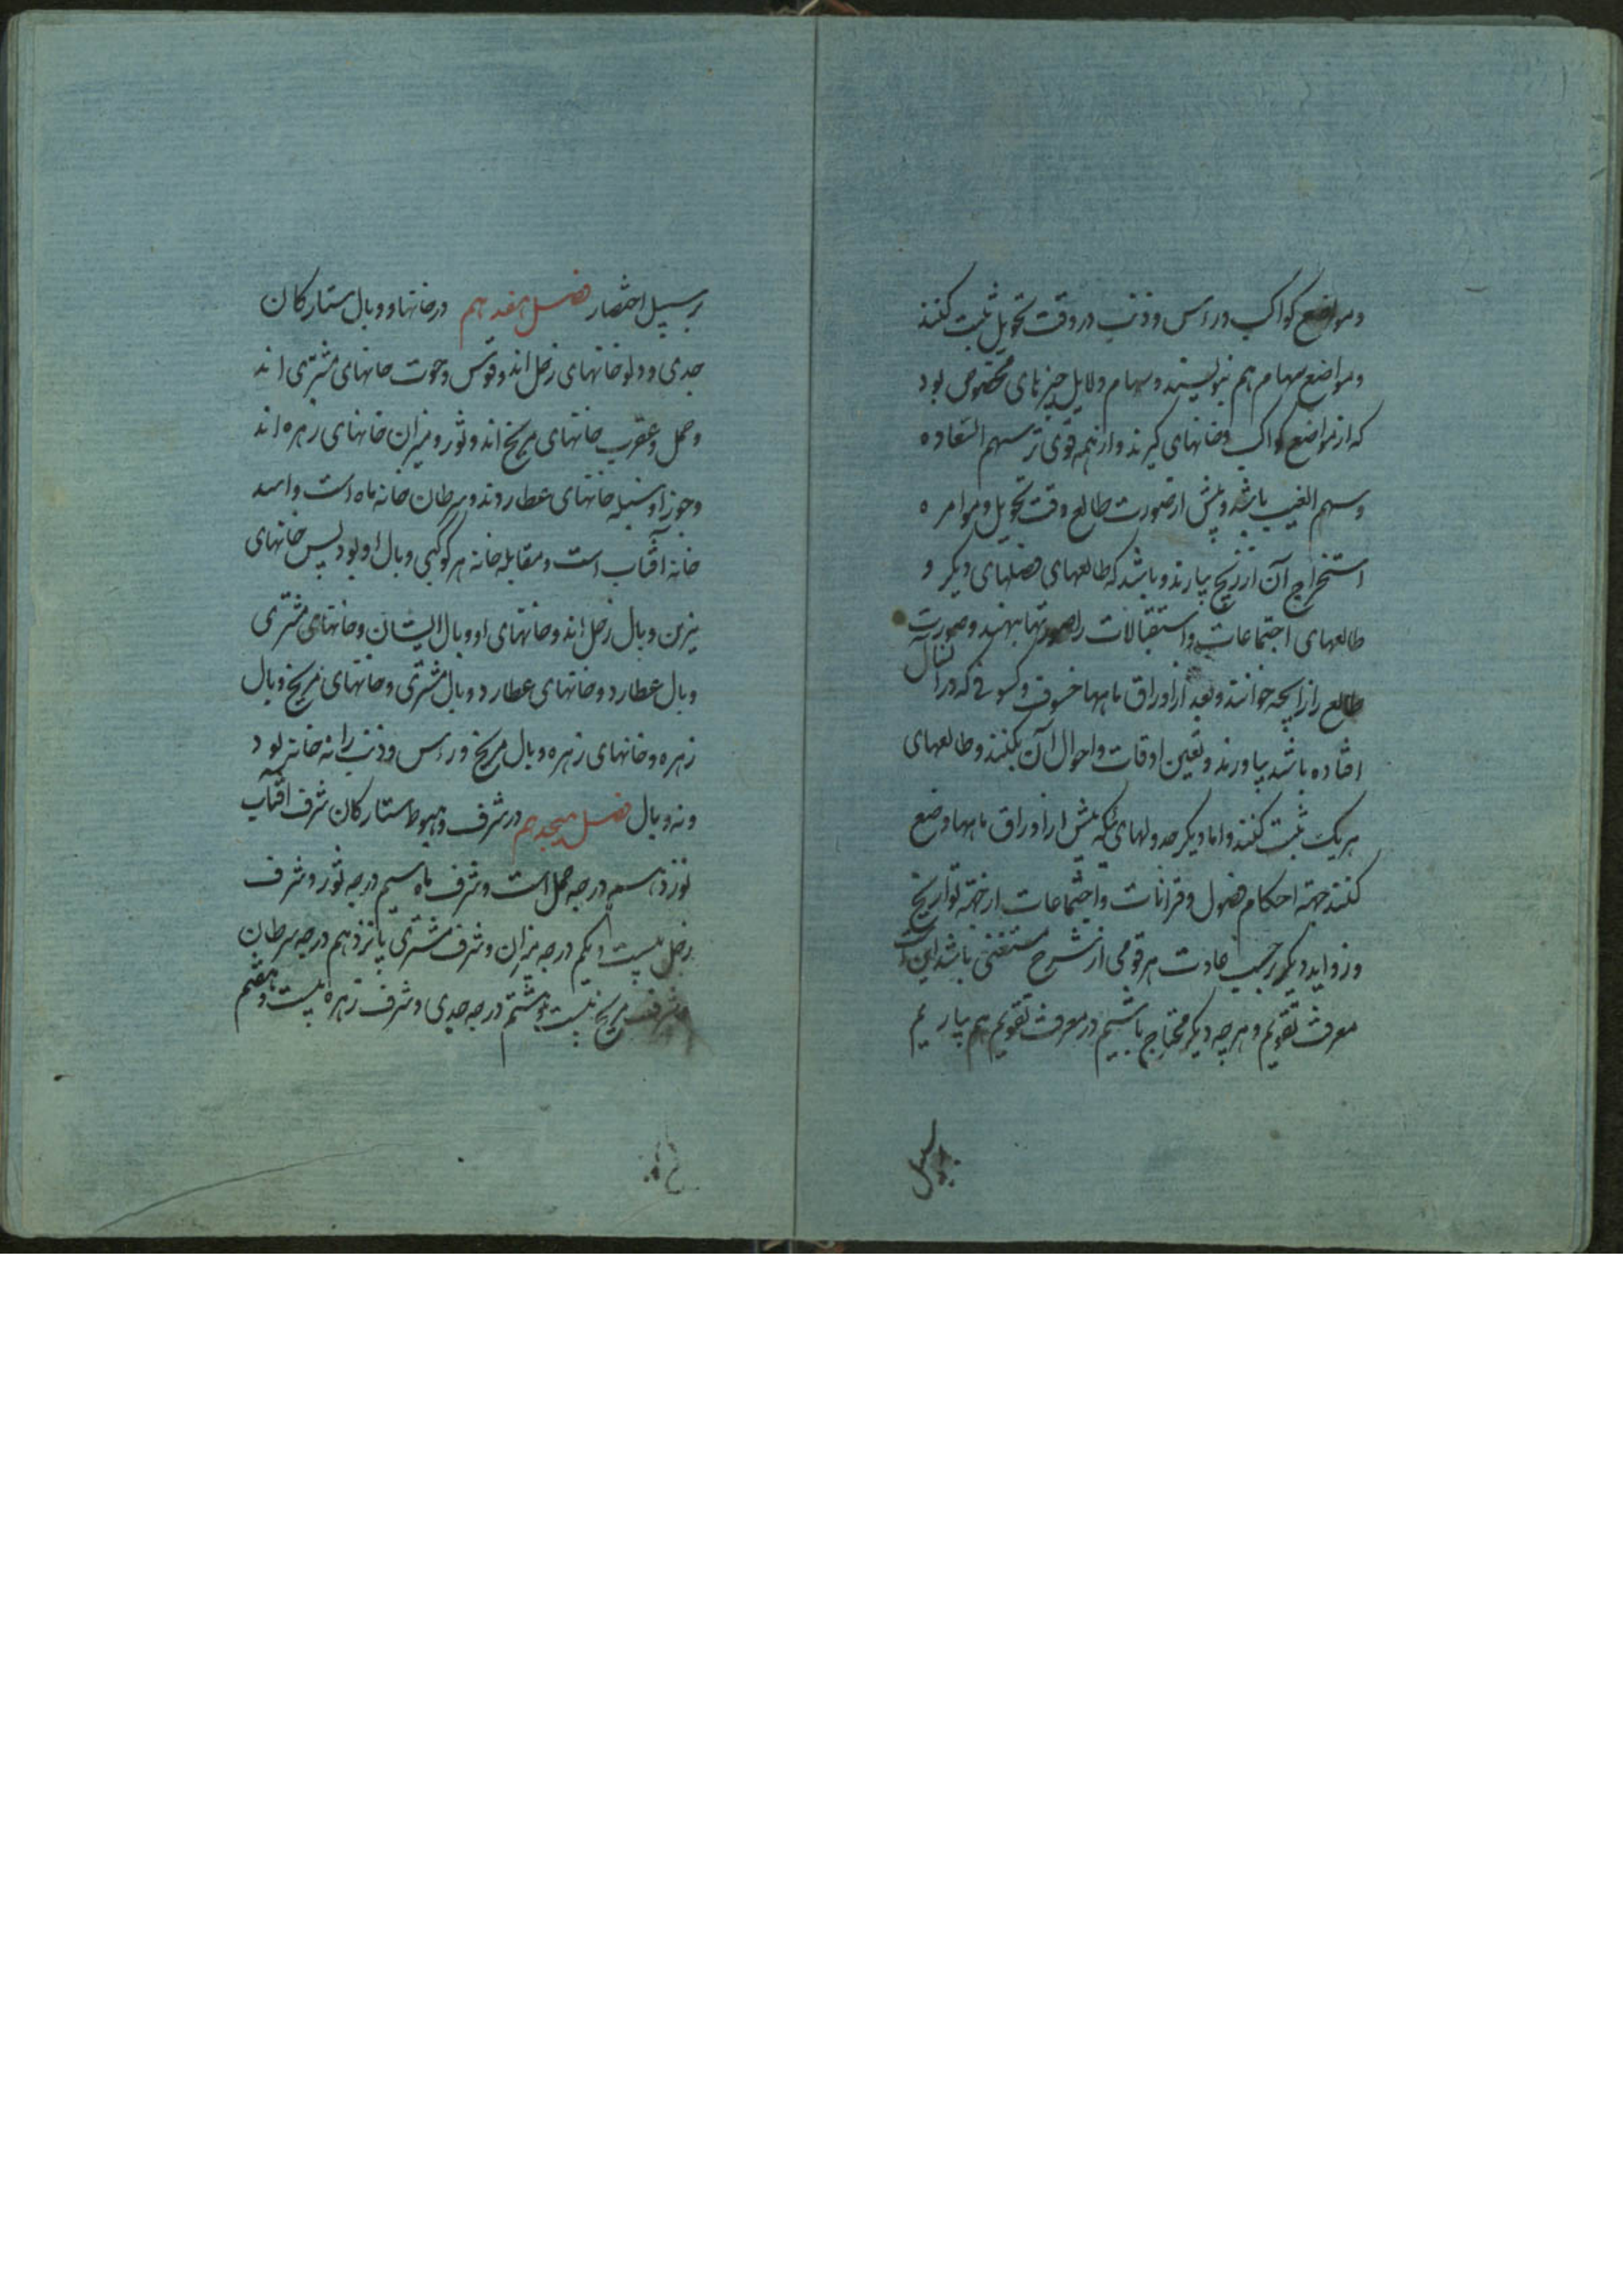 ومواضع کواکب وراس و ذنب در وقت تحویل ثبت کنند
ومواضع سهام هم بنویسند وسهام دلایل چیزهای مخصوص بود
که از مواضع کواکب وخانهای کیرند و از همه قوی تر سهم السعاده
وسهم الغیب باشد وپیش از صورت طالع وقت تحویل و موامره
استخراج آن از زیج بیارند و باشد که طالعهای فصلهای دیکر و
طالعهای اجتماعات و استقبالات را صورتها بنهند وصورت
طالع را زایچه خوانند وبعد از اوراق ماهها خسوف و کسوفی که در آنسال
افتاده باشد بیاورند و تعین اوقات و احوال آن بکنند و طالعهای
هریک ثبت کنند و اما دیکر جدولهای که پیش از اوراق ماهها وضع
کنند جهته احکام فصول و قرانات و اجتماعات از جهته تواریخ
و زواید دیکر بر حسب عادت هر قومی از شرح مستغنی باشد این است
معرفت تقویم و هرچه دیکر محتاج باشیم در معرفت تقویم هم بیاریم
بر سبیل
بر سبیل اختصار فصل هفدهم در خانها و وبال ستارکان
جدی و دلو خانهای زحل اند و قوس وحوت خانهای مشتری اند
وحمل وعقرب خانهای مریخ اند و ثور و میزان خانهای زهره اند
وجوزا و سنبله خانهای عطاردند وسرطان خانه ماه است و اسد
خانه آفتاب است و مقابله خانه هر کوکبی وبال او بود پس خانهای
نیرین وبال زحل اند و خانهای او وبال ایشان و خانهای مشتری
وبال عطارد و خانهای عطارد وبال مشتری و خانهای مریخ وبال
زهره و خانهای زهره وبال مریخ و راس و ذنب را نه خانه بود
و نه وبال فصل هیجدهم در شرف و هبوط ستارکان شرف آفتاب
نوزدهم درجه حمل است و شرف ماه سیم درجه ثور و شرف
زحل بیست و یکم درجه میزان و شرف مشتری پانزدهم درجه سرطان
و شرف مریخ بیست و هشتم درجه جدی و شرف زهره بیست و هفتم